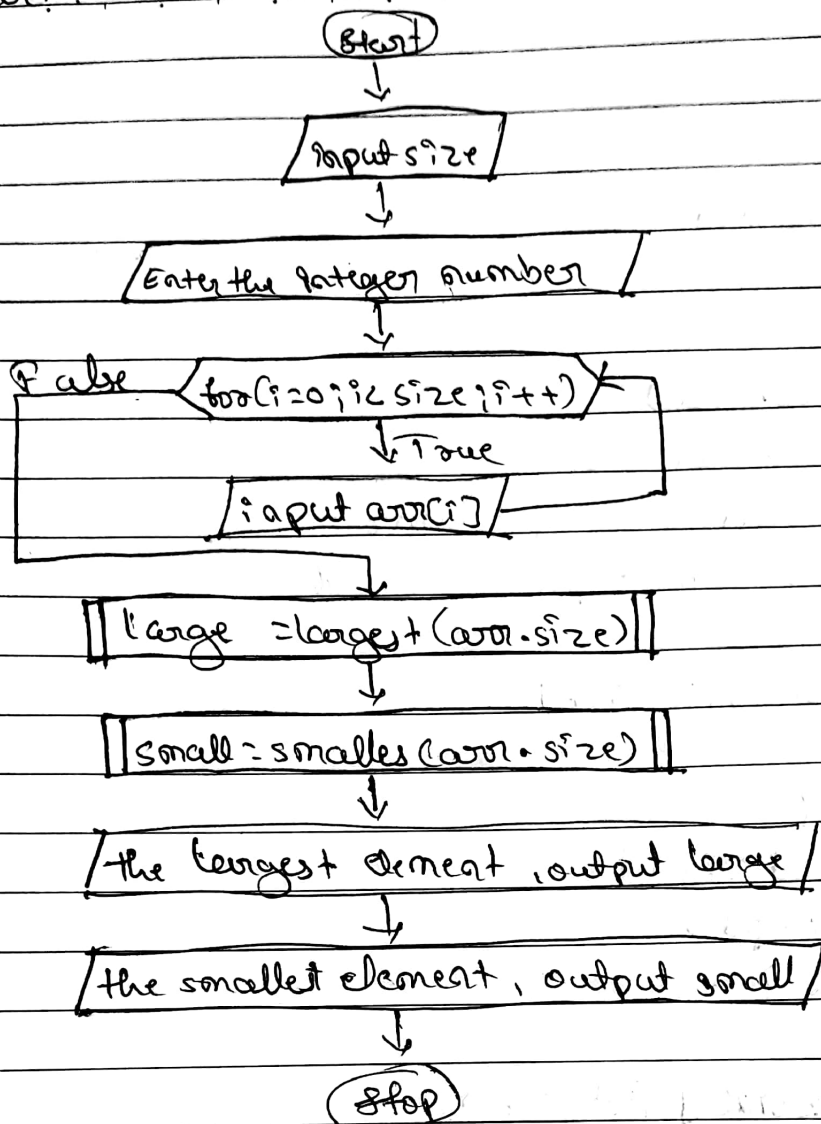 Start
input size
Enter the Integer number
False
for(i=0;i< size;i++)
True
input arr[i]
large =largest (arr.size)
small = smalles (arr.size)
the largest element, output large
the smallest element, output small
Stop